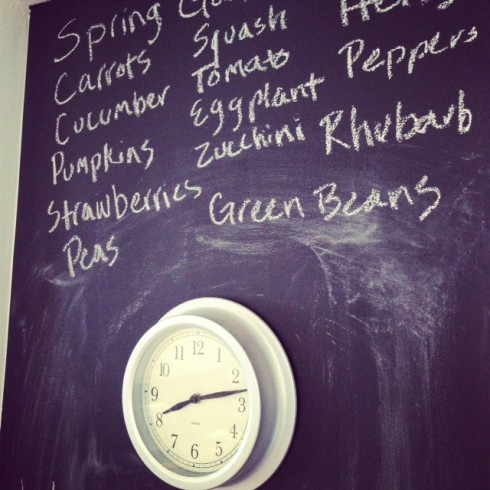 Spring
Carrots
Cucumber
Pumpkins
Strawberries
Peas
Squash
Tomato
Eggplant
Zucchini
Green Beans
Peppers
Rhubarb
12
1
2
3
4
5
6
7
8
9
10
11